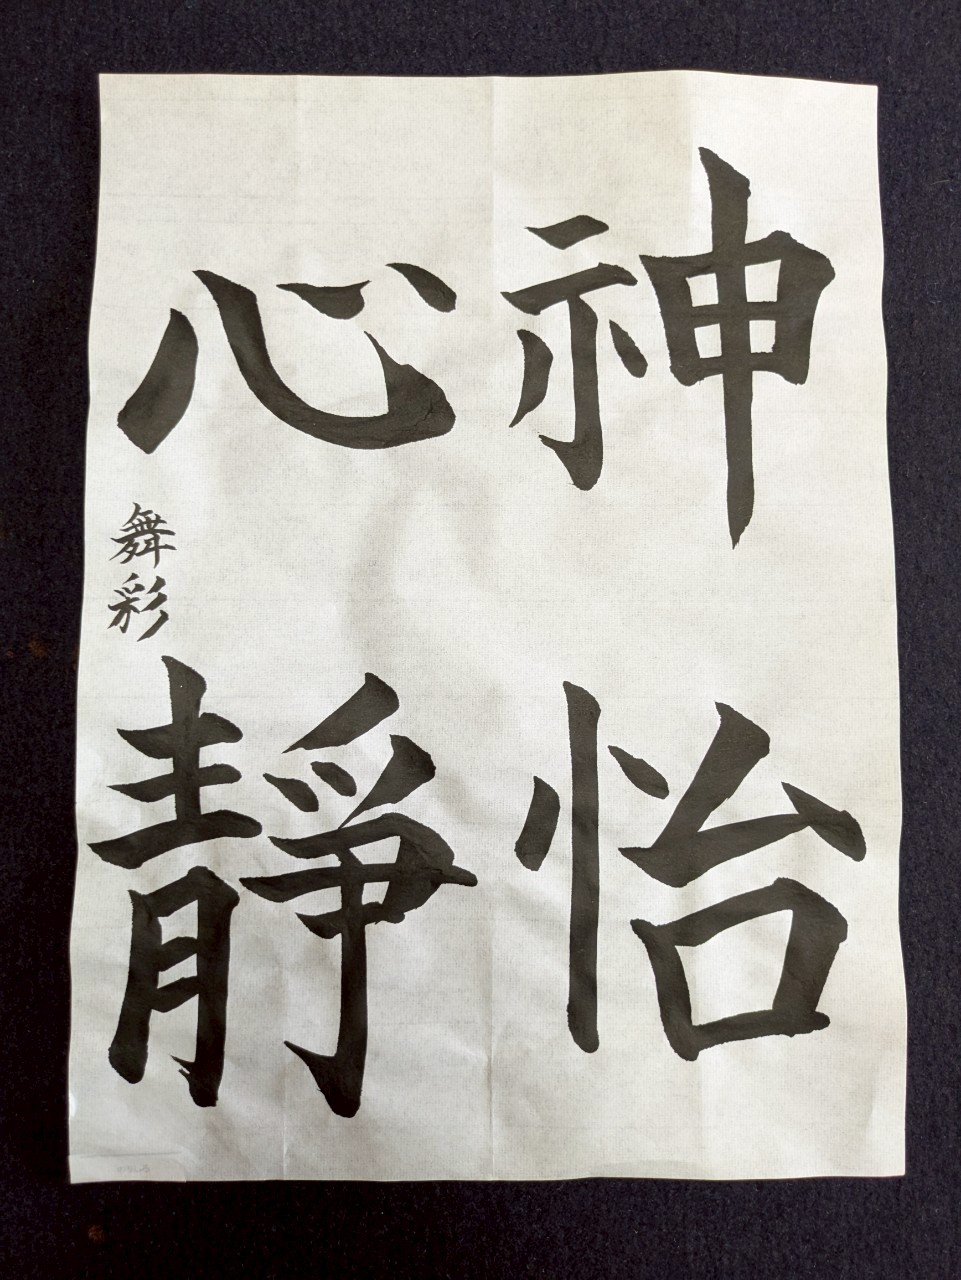 神怡
心静
舞彩